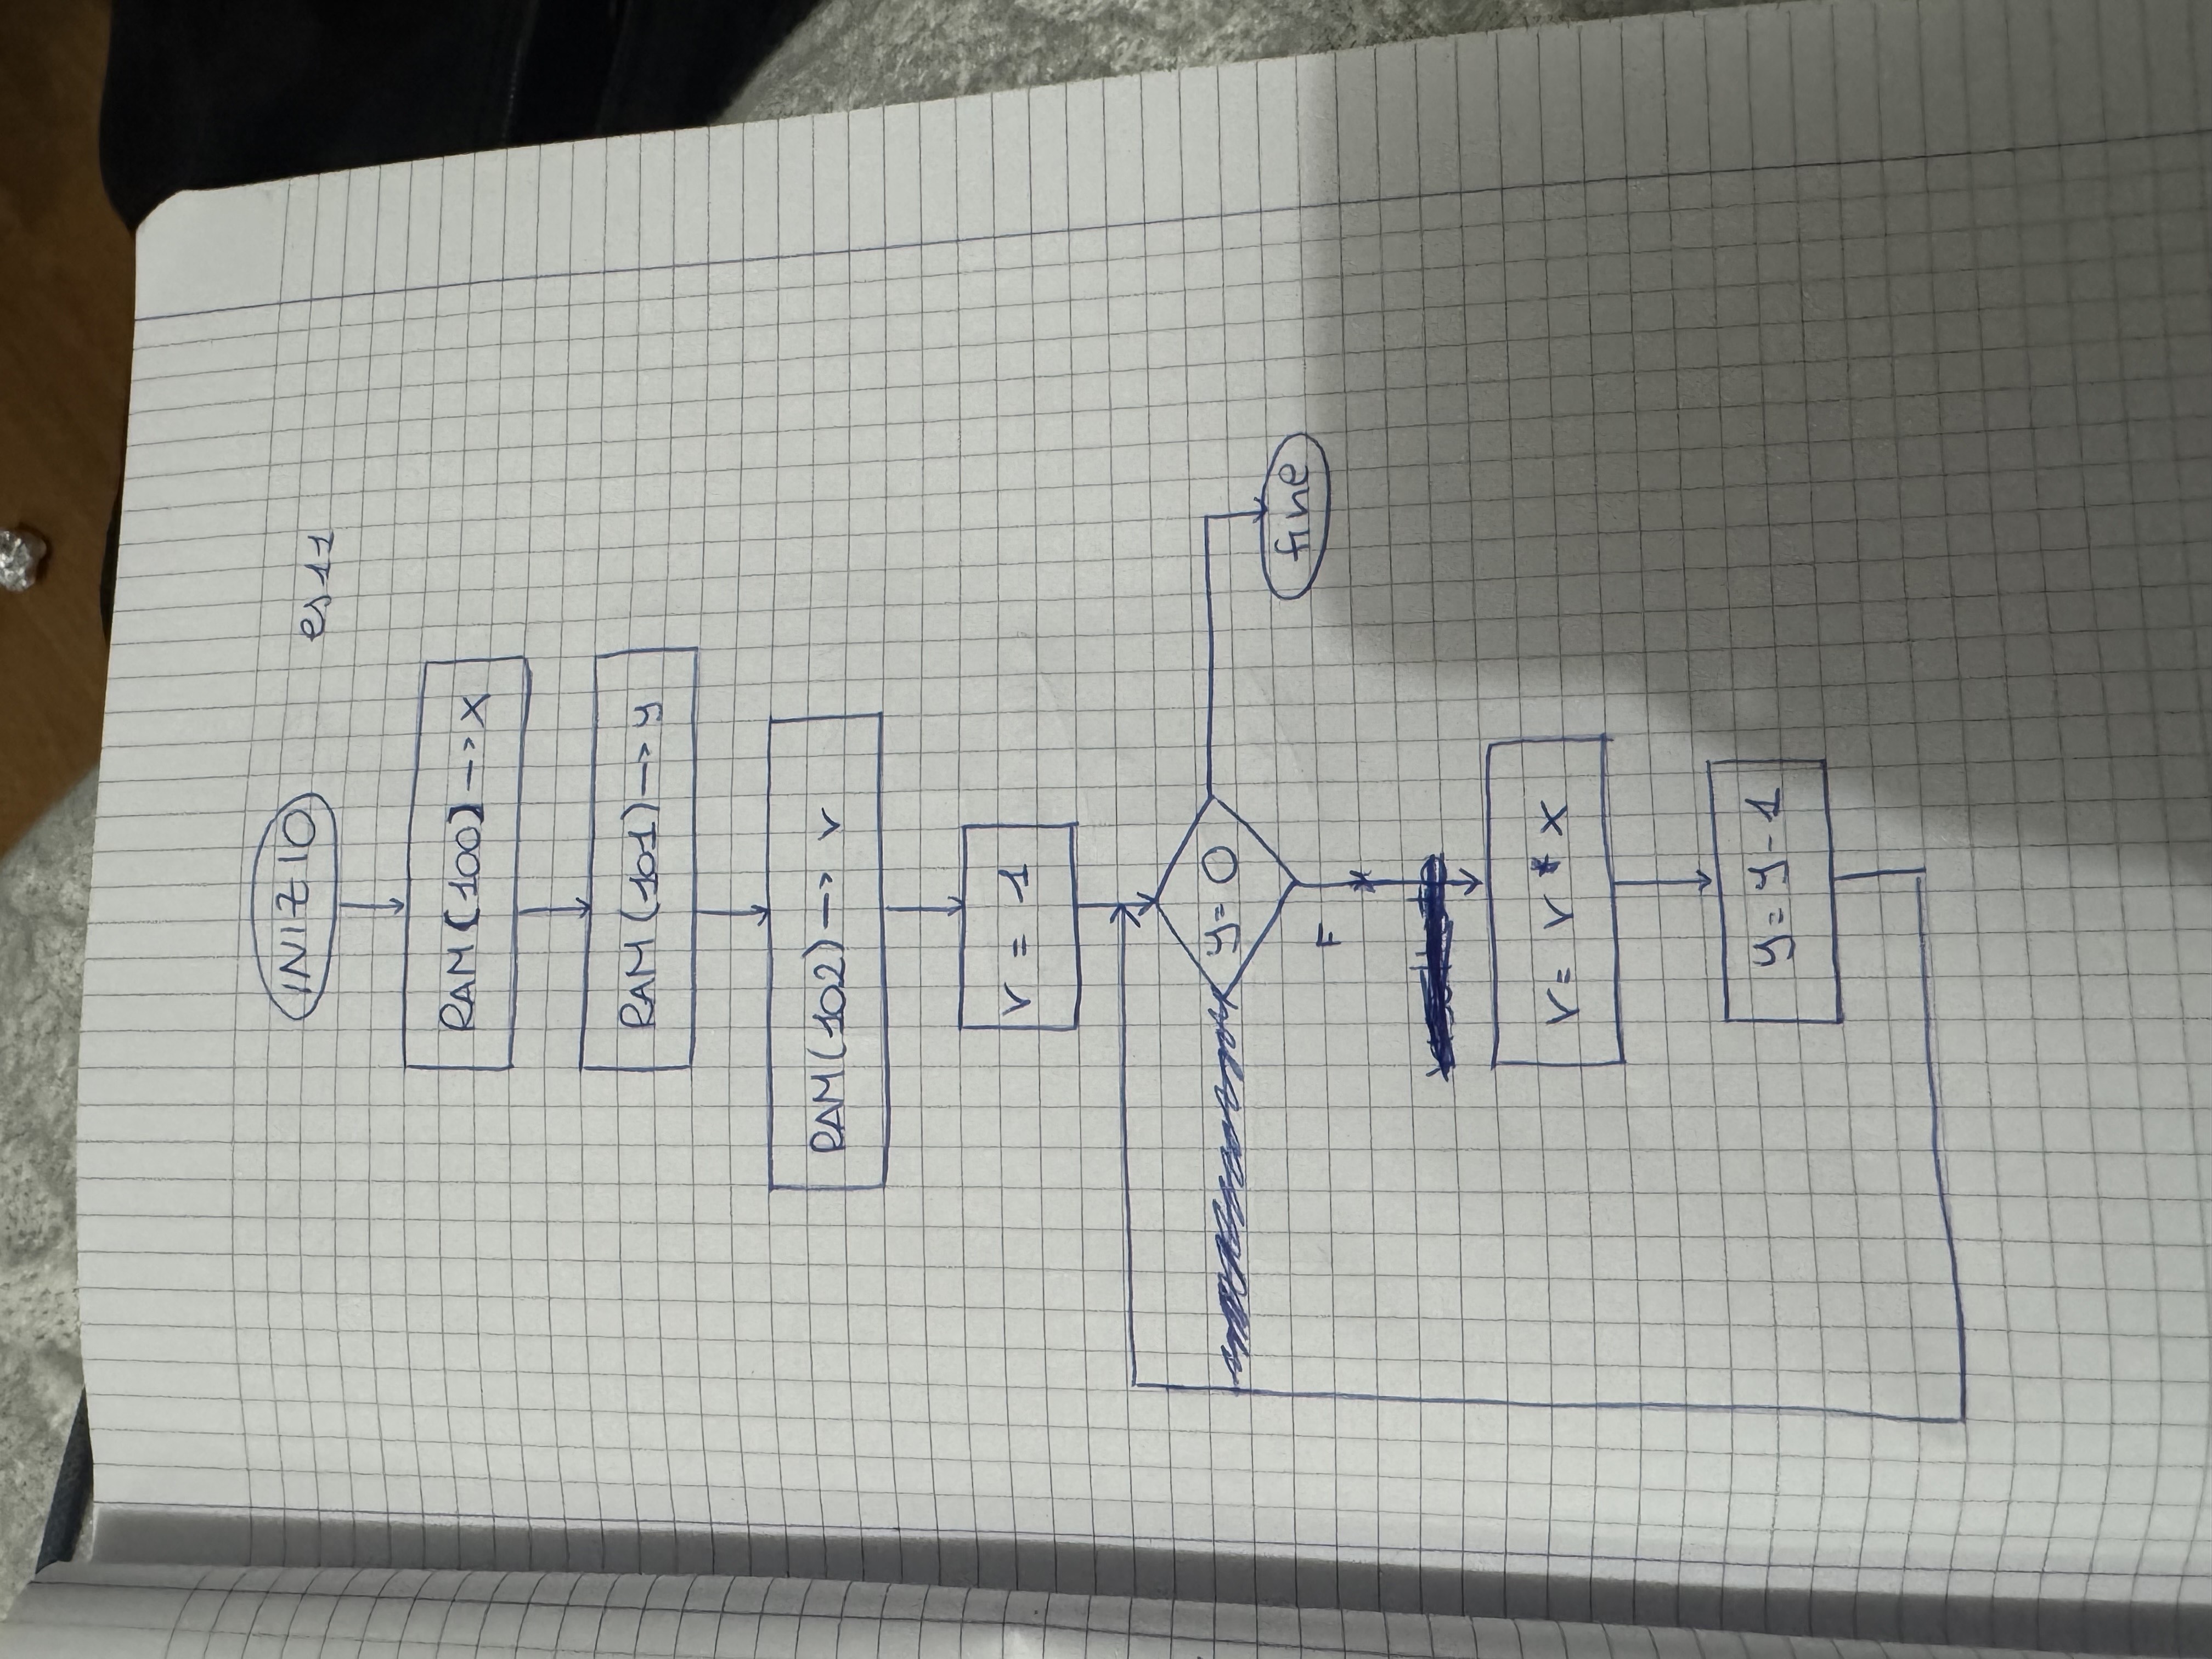 INIZIO
es11
RAM [100] --> x
RAM (101) --> y
RAM (102) --> v
v = 1
y = 0
fine
F
v = v * x
y = y - 1